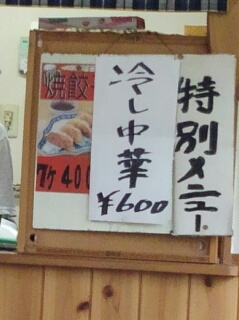 特別メニュー
冷し中華
¥600
焼餃
7ケ 400